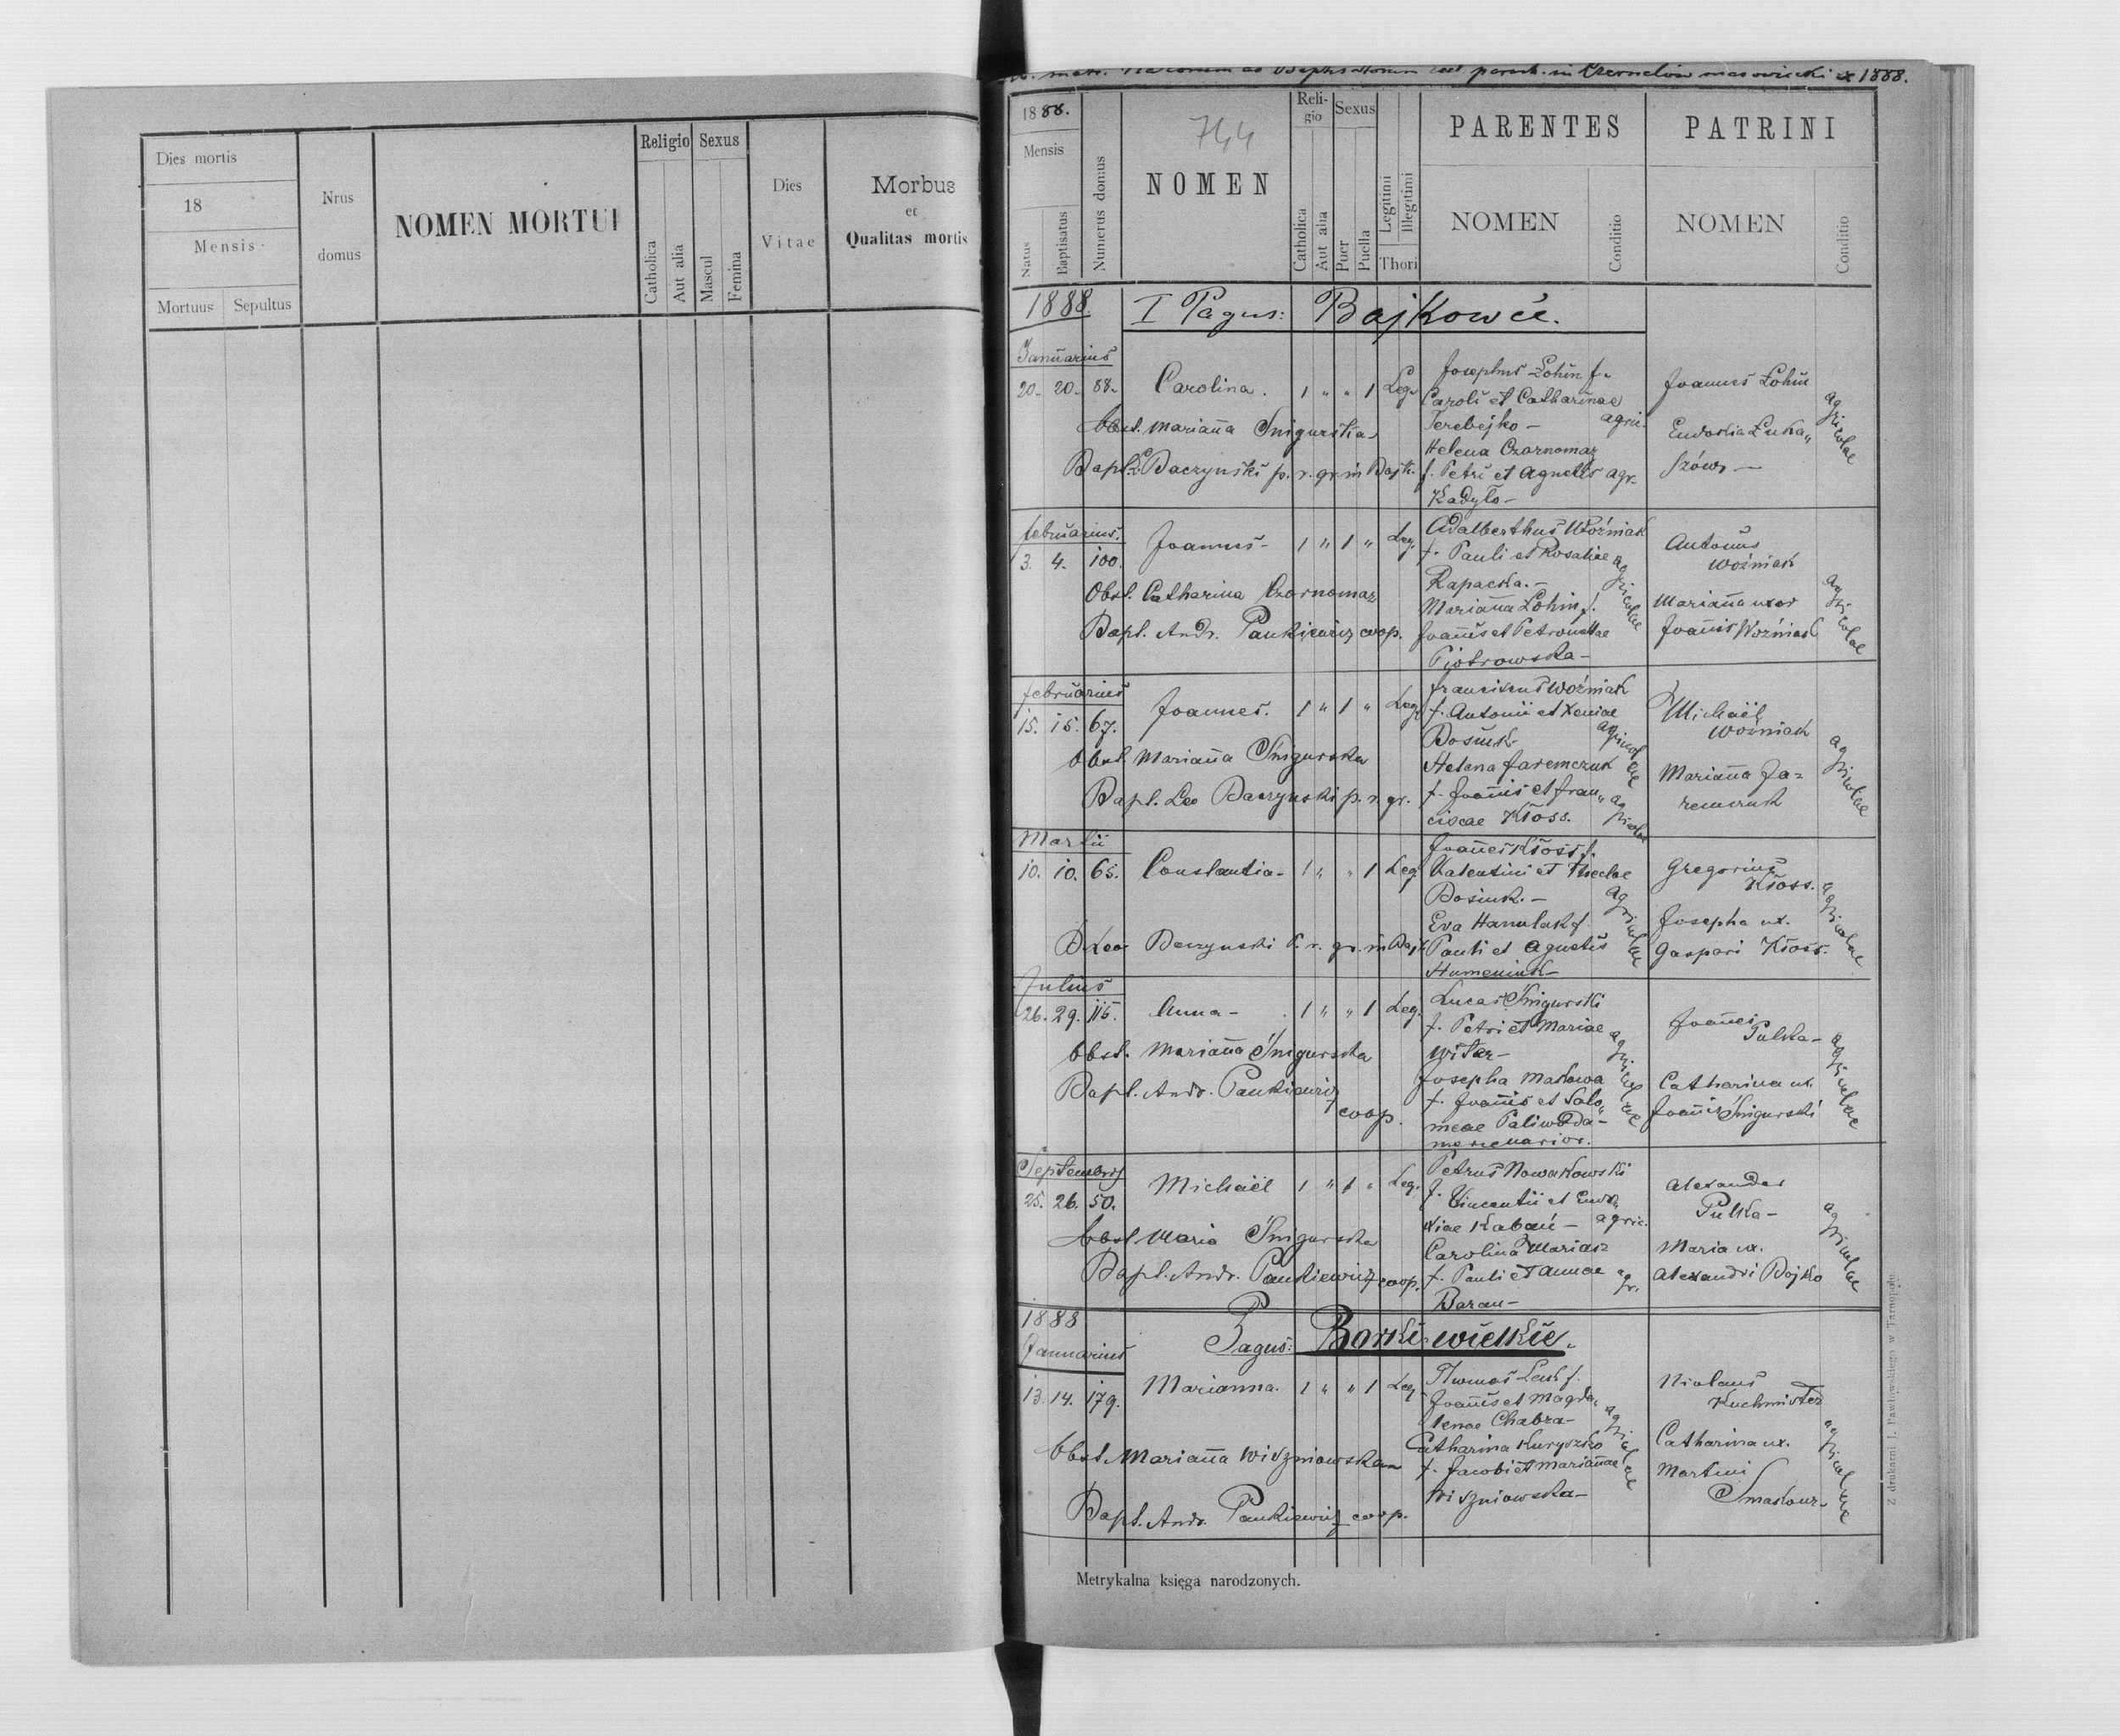 Dies mortis
18
Mensis
Mortuus Sepultus
Nrus
domus
NOMEN MORTUI
Religio
Catholica
Aut alia
Sexus
Mascul
Femina
Dies
Vitae
Morbus
et
Qualitas mortis
Baptisatorum paroch. in Czernelów masowiecki 1888.
1888.
Mensis
Natus
Baptisatus
Numerus domus
744
NOMEN
Religio
Catholica
Aut alia
Sexus
Puer
Puella
Legitimi
Illegitimi
Thori
PARENTES
NOMEN
Conditio
PATRINI
NOMEN
Conditio
1888. I Pagus: Bajkowce.
Januarius
20. 20. 88. Carolina. 1 " " 1 Leg.
Obst. Marianna Śnigurska
Bapt. L. Baczynski p. r. gr. in Bajk.
Josephus Łohin f.
Caroli et Catharinae
Terebejko - agric.
Helena Czornomaz
f. Petri et Agnetis agr.
Kadyło -
Joannes Łohin
Eudoskia Łuka"
szów -
agricolae
februarius.
3. 4. 100. Joannes - 1 " 1 " Leg.
Obst. Catharina Czornomaz
Bapt. Andr. Pankiewicz coop.
Adalberthus Woźniak
f. Pauli et Rosaliae
Rapacka. -
Marianna Łohin f.
Joannis et Petronellae
Piotrowska -
agricolae
Antonius
Woźniak
Marianna uxor
Joannis Woźniak
agricolae
februarius
15. 15. 67. Joannes. 1 " 1 " Leg.
Obst. Marianna Śnigurska
Bapt. Leo Baczynski p. r. gr.
Franciscus Woźniak
f. Antonii et Xeniae
Bosiuk
agricolae
Helena Jaremczuk
f. Joannis et Fran"
ciscae Kłoss.
agricolae
Michaël
Woźniak
Marianna Ja=
remczuk
agricolae
Martii
10. 10. 65. Constantia - 1 " " 1 Leg.
B. Leo Baczynski P. r. gr. in Bajk.
Joannes Kłoss f.
Valentini et Theclae
Bosiuk. -
Eva Hanulak f.
Pauli et Agnetis
Humeniuk -
agricolae
Gregorius
Kłoss.
Josepha ux.
Gaspari Kłoss.
agricolae
Julius
26. 29. 115. Anna - 1 " " 1 Leg.
Obst. Marianna Śnigurska
Bapt. Andr. Pankiewicz
coop.
Lucas Śnigurski
f. Petri et Mariae
Witar -
Josepha Makowa
f. Joannis et Salo"
meae Paliwoda -
mercenarior.
agricolae
Joannes
Pulka -
Catharina ux.
Joannis Śnigurski
agricolae
Septembris
25. 26. 50. Michaël 1 " 1 " Leg.
Obst. Maria Śnigurska
Bapt. Andr. Pankiewicz coop.
Petrus Nowakowski
f. Vincentii et Eudo"
xiae Kabań - agric.
Carolina Mariasz
f. Pauli et Annae agr.
Baran -
Alexander
Pulka -
Maria ux.
Alexandri Bojko
agricolae
1888
Pagus: Borki wielkie.
Januarius
13. 14. 179. Marianna. 1 " " 1 Leg
Obst. Marianna Wiszniowska
Bapt. Andr. Pankiewicz coop.
Thomas f.
Joannis et Magda"
lenae Chabza -
Catharina Kuryszko
f. Jacobi et Mariannae
Wiszniowska -
agricolae
Nicolaus
Kuchmister
Catharina ux.
Martini
agricolae
Metrykalna księga narodzonych.
Z drukarni J. Pawłowskiego w Tarnopolu.